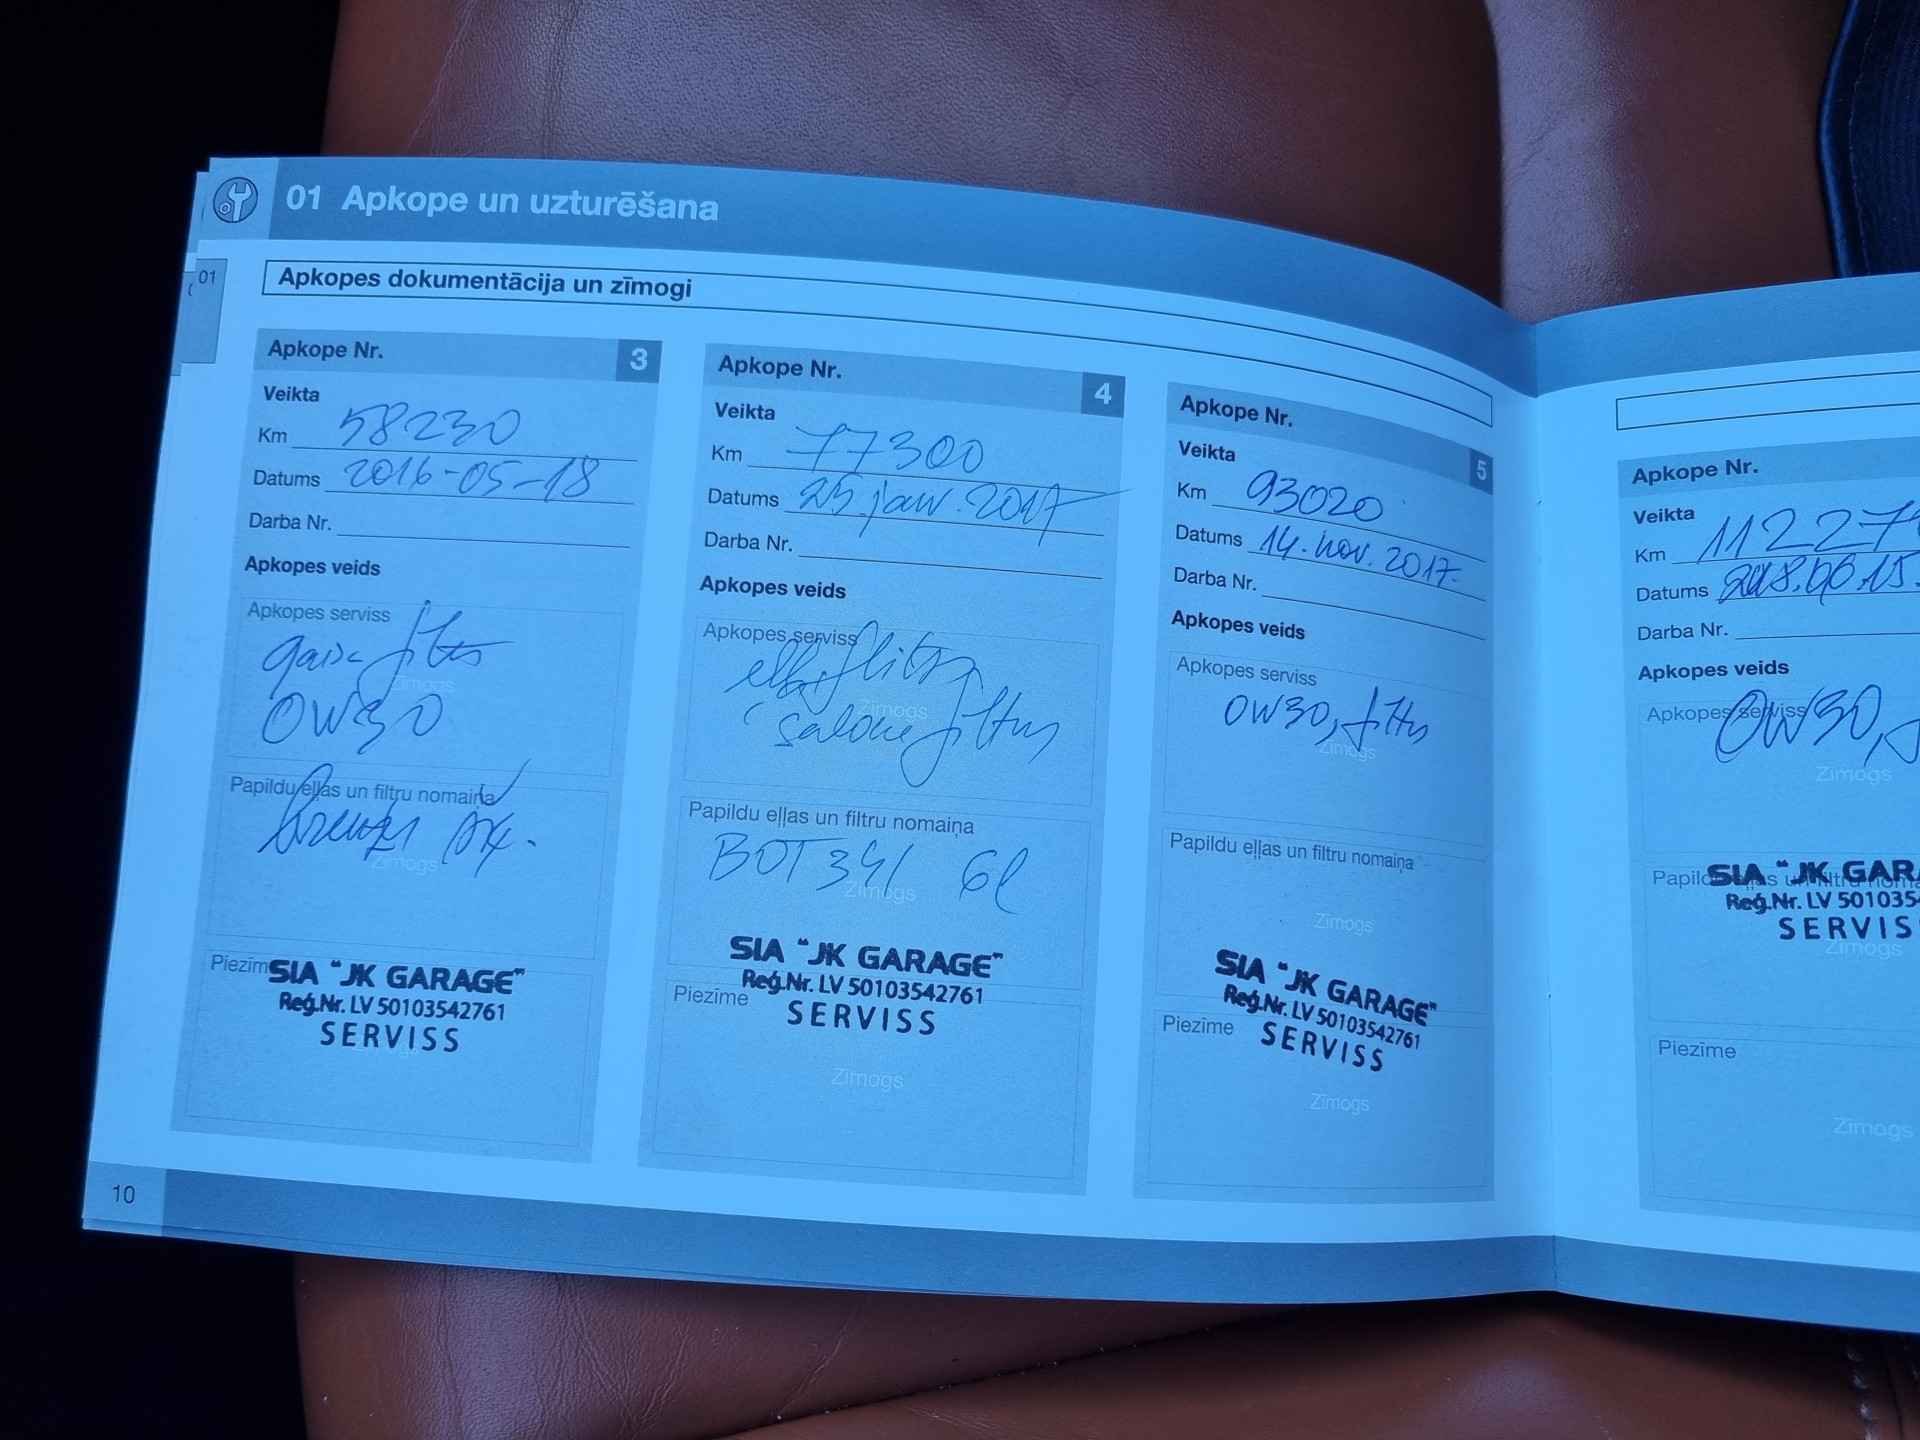 01 Apkope un uzturēšana
01
Apkopes dokumentācija un zīmogi
Apkope Nr. 3
Veikta
Km 58230
Datums 2016-05-18
Darba Nr.
Apkopes veids
Apkopes serviss
gaisa filtrs
Zīmogs
0W30
Papildu eļļas un filtru nomaiņa
Zīmogs
Piezīme
SIA "JK GARAGE"
Reģ.Nr. LV 50103542761
SERVISS
Apkope Nr. 4
Veikta
Km 77300
Datums 25.janv.2017
Darba Nr.
Apkopes veids
Apkopes serviss
Zīmogs
salona filtrs
Papildu eļļas un filtru nomaiņa
BOT341 6l
Zīmogs
SIA "JK GARAGE"
Reģ.Nr. LV 50103542761
Piezīme
SERVISS
Zīmogs
Apkope Nr. 5
Veikta
Km 93020
Datums 14.nov.2017.
Darba Nr.
Apkopes veids
Apkopes serviss
0W30, filtrs
Zīmogs
Papildu eļļas un filtru nomaiņa
Zīmogs
SIA "JK GARAGE"
Reģ.Nr. LV 50103542761
Piezīme
SERVISS
Zīmogs
10
Apkope Nr.
Veikta
Km 11227
Datums 2018.06.15.
Darba Nr.
Apkopes veids
Apkopes serviss
0W30,
Zīmogs
Papildu eļļas un filtru noma
SIA "JK GARA
Reģ.Nr. LV 501035
SERVIS
Zīmogs
Piezīme
Zīmogs